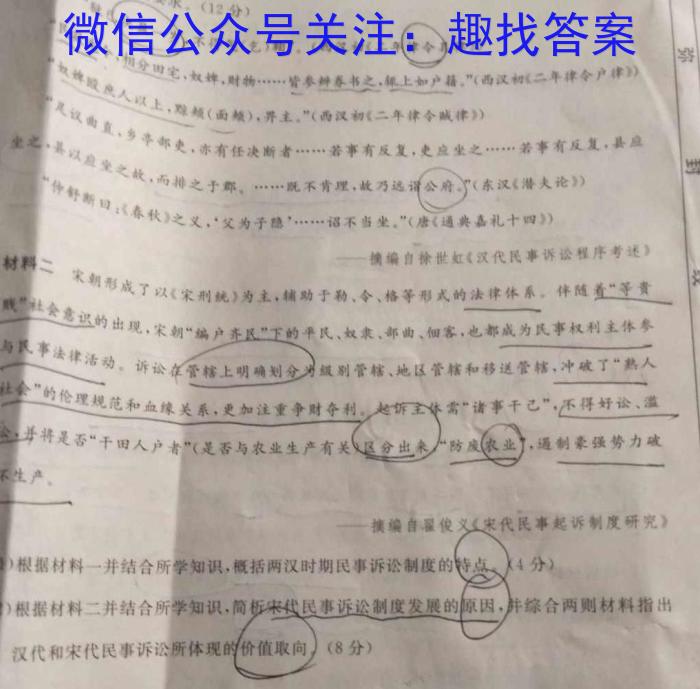 要求。(12分)
微信公众号关注：趣找答案
相分田宅,奴婢,财物……皆参辨券书之,辄上如户籍。"(西汉初《二年律令户律》)
"奴婢殴庶人以上,黥頯(面颊),畀主。"(西汉初《二年律令贼律》)
"是议曲直,乡亭部吏,亦有任决断者……若事有反复,吏应坐之……若事有反复,县应
坐之,县以应坐之故,而排之于郡。……既不肯理,故乃远谓公府。"(东汉《潜夫论》)
"仲舒断曰:《春秋》之义,'父为子隐'……诏不当坐。"(唐《通典嘉礼十四》)
——摘编自徐世虹《汉代民事诉讼程序考述》
材料二 宋朝形成了以《宋刑统》为主,辅助于勒、令、格等形式的法律体系。伴随着"等贵
贱"社会意识的出现,宋朝"编户齐民"下的平民、奴隶、部曲、佃客,也都成为民事权利主体参
与民事法律活动。诉讼在管辖上明确划分为级别管辖、地区管辖和移送管辖,冲破了"熟人
社会"的伦理规范和血缘关系,更加注重争财夺利。起诉主体需"诸事干己",不得好讼、滥
讼,并将是否"干田人户者"(是否与农业生产有关)区分出来,"防废农业",遏制豪强势力破
坏生产。
——摘编自翟俊义《宋代民事起诉制度研究》
)根据材料一并结合所学知识,概括两汉时期民事诉讼制度的特点。(4分)
)根据材料二并结合所学知识,简析宋代民事诉讼制度发展的原因,并综合两则材料指出
汉代和宋代民事诉讼所体现的价值取向。(8分)
弥
封